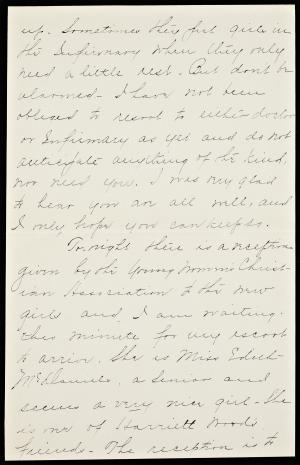 up. Sometimes they put girls in
the Infirmary when they only
need a little rest. But don't be
alarmed - I have not been
obliged to resort to either doctor
or Infirmary as yet and do not
anticipate anything of the kind,
nor need you. I was very glad
to hear you are all well, and
I only hope you can keep so.
Tonight there is a reception
given by the Young Women's Christ-
ian Association to the new
girls and I am waiting
this minute for my escort
to arrive. She is Miss Edith
a Senior and
seems a very nice girl - She
is one of Harriett Wood's
friends - The reception is to